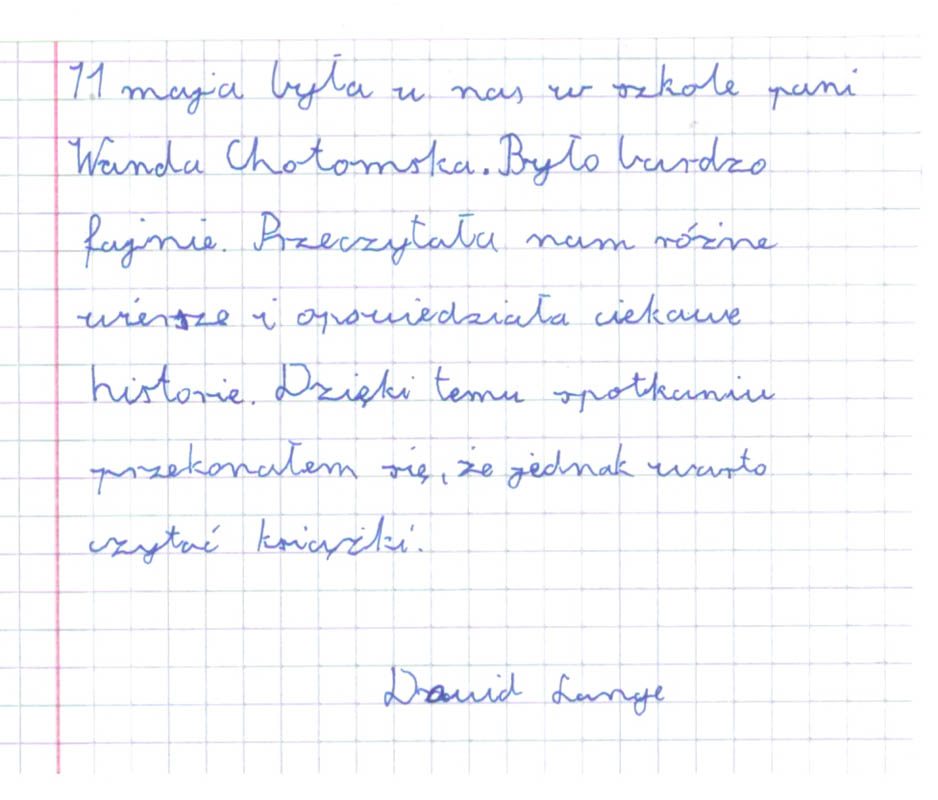 11 maja była u nas w szkole pani
Wanda Chotomska. Było bardzo
fajnie. Przeczytała nam różne
wiersze i opowiedziała ciekawe
historie. Dzięki temu spotkaniu
przekonałem się, że jednak warto
czytać książki.
Dawid Lange